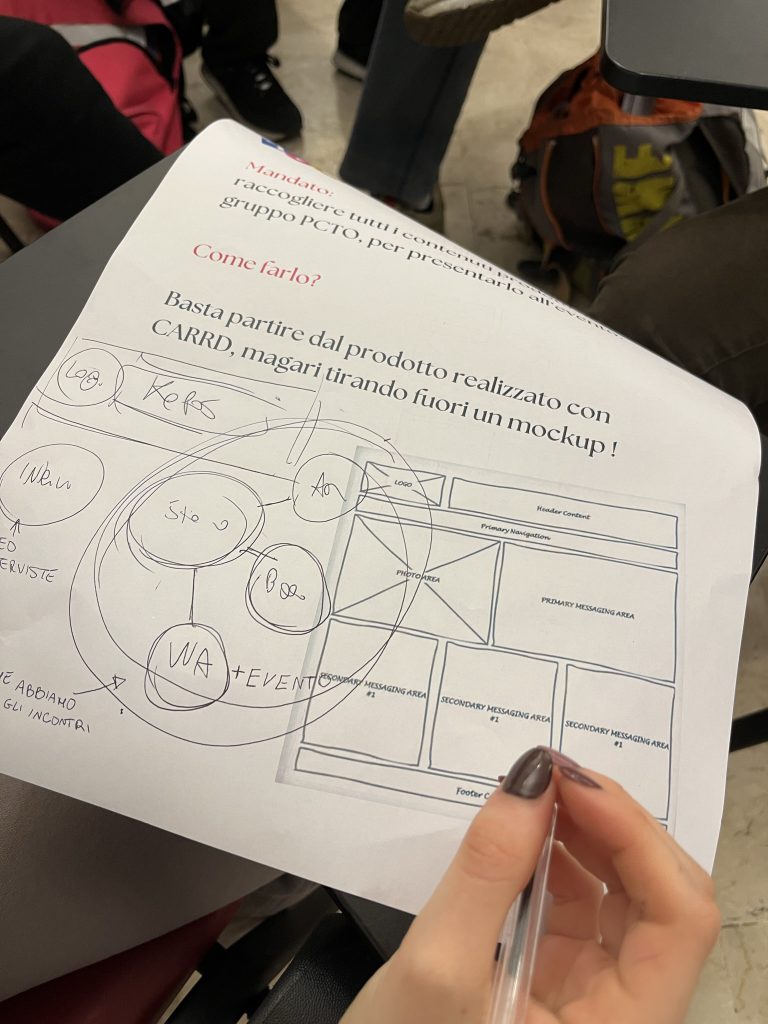 Mandato:
raccogliere tutti i contenuti
gruppo PCTO, per presentarlo all'evento
Come farlo?
Basta partire dal prodotto realizzato con
CARRD, magari tirando fuori un mockup !
LOGO
Header Content
Primary Navigation
PHOTO AREA
PRIMARY MESSAGING AREA
SECONDARY MESSAGING AREA
#1
SECONDARY MESSAGING AREA
#1
SECONDARY MESSAGING AREA
#1
Footer C
WA + EVENTO
EO
ERVISTE
ABBIAMO
GLI INCONTRI